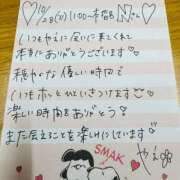 10/28(火)11:00~本指名Nさん
いつもやえに会いに来てくれて
本当にありがとうございます
穏やかな優しい時間で
いつもホッとさせていただきます
楽しい時間をありがとう
また会えることを楽しみにしています
やゑ
SMAK